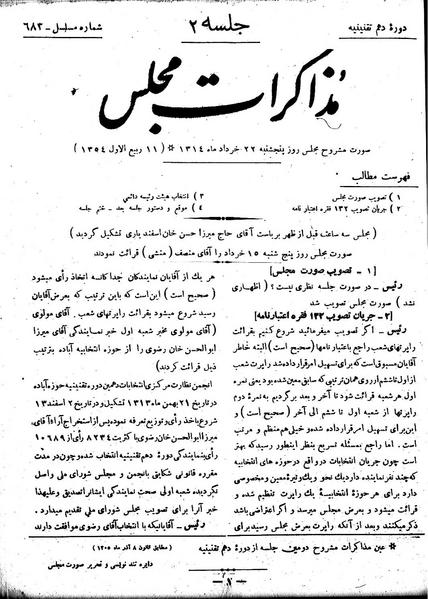 جلسه ۲
دورهٔ دهم تقنینیه
شماره مسلسل - ۶۸۳
مذاکرات مجلس
صورت مشروح مجلس روز پنجشنبه ۲۲ خرداد ماه ۱۳۱۴ * (۱۱ ربیع الاول ۱۳۵۴)
فهرست مطالب
۱) تصویب صورت مجلس
۲) جریان تصویب ۱۳۲ فقره اعتبار نامه
۳) انتخاب هیئت رئیسه دائمی
۴) موقع و دستور جلسه بعد - ختم جلسه
(مجلس سه ساعت قبل از ظهر بریاست آقای حاج میرزا حسن خان اسفندیاری تشکیل گردید)
صورت مجلس روز پنج شنبه ۱۵ خرداد را آقای منصف (منشی) قرائت نمودند
[۱ - تصویب صورت مجلس]
رئیس - در صورت جلسه نظری نیست؟ (اظهاری
نشد) صورت مجلس تصویب شد
[۲- جریان تصویب ۱۳۲ فقره اعتبارنامه]
رئیس - اگر تصویب میفرمائید شروع کنیم بقرائت
راپرتهای شعب راجع باعتبار نامها (صحیح است) البته خاطر
آقایان مسبوق است که برای تسهیل امر قرار داده شد راپرت شعب
از اول تا ششم از روی همان ترتیبی که سابق معین شده بود یعنی نمره
اول هر شعبه قرائت شود تا آخر و بعد برگردیم به نمرهٔ دوم
راپرتها از شعبه اول تا ششم الی آخر (صحیح است) و
این برای تسهیل امر قرار داده شد و خیلی هم منظم و مرتب
است. اما راجع بمسئله تسریع بنظر اینطور رسید که بهتر
است چون جریان انتخابات در واقع در حوزه های انتخابیه
که چند نفر نماینده دارد یک نحو و یک وتیرهٔ معین و مخصوصی
دارد برای هر حوزهٔ انتخابیهٔ یک راپرت تنظیم شده و
قرائت میشود و بعرض مجلس میرسد و اگر اعتراضی باشد
ذکر میکنند و بعد از آنکه راپرت بعرض مجلس رسید برای
هر یک از آقایان نمایندگان جداگانه اتخاذ رأی میشود
(صحیح است) این است که باین ترتیب که بعرض آقایان
رسید شروع میشود بقرائت راپرتهای شعب. آقای مولوی
(آقای مولوی مخبر شعبه اول خبر نمایندگی آقای میرزا
ابوالحسن خان رضوی را از حوزه انتخابیه آباده بترتیب
ذیل قرائت کردند)
انجمن نظارت مرکزی انتخابات دهمین دورهٔ تقنینیه حوزه آباده
در تاریخ ۲۱ بهمن ماه ۱۳۱۳ تشکیل و در تاریخ ۲ اسفند ۱۳
شروع باخذ رأی و توزیع تعرفه نموده پس از استخراج آراء آقای
میرزا ابوالحسن خان رضوی با کثریت ۸۲۳۴ رأی از ۱۰۶۸۹
رأی بنمایندگی دورهٔ دهم تقنینیه انتخاب شده و چون در مدت
مقرره قانونی شکایتی بانجمن و مجلس شورای ملی واصل
نگردیده شعبه اول صحت نمایندگی ایشان را تصدیق و علیهذا
خبر آنرا برای تصویب مجلس شورای ملی تقدیم میدارد.
رئیس - آقایانیکه با انتخاب آقای رضوی موافقت دارند
* عین مذاکرات مشروح دومین جلسه از دورهٔ دهم تقنینیه
(مطابق قانون ۸ آذر ماه ۱۳۰۵)
دایره تند نویسی و تحریر صورت مجلس